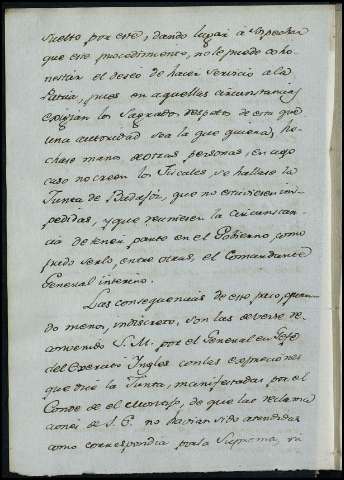 suelto por este, dando lugar á sospechar
que este procedimiento, no le puede coho-
nestar el deseo de hacer servicio a la
Patria, pues en aquellas circunstancias
exigian los Sagrados respetos de esta que
una autoridad sea la que quiera, he-
chase mano de otras personas, en cuyo
caso no creen los Fiscales se hallase la
Junta de Badajoz, que no estuviesen im-
pedidas, y que reuniesen la circunstan-
cia de tener parte en el Gobierno, como
pudo serlo, entre otras, el Comandante
General interino.
Las consequencias de este paso, quan-
do menos, indiscreto, son las de verse re-
convenido S. M. por el General en Gefe
del Exercito Ingles con las expresiones
que dice la Junta, manifestadas por el
Conde de el Montijo, de que las reclama
ciones de S. E. no havian sido atendidas
como correspondia por la Suprema, ni